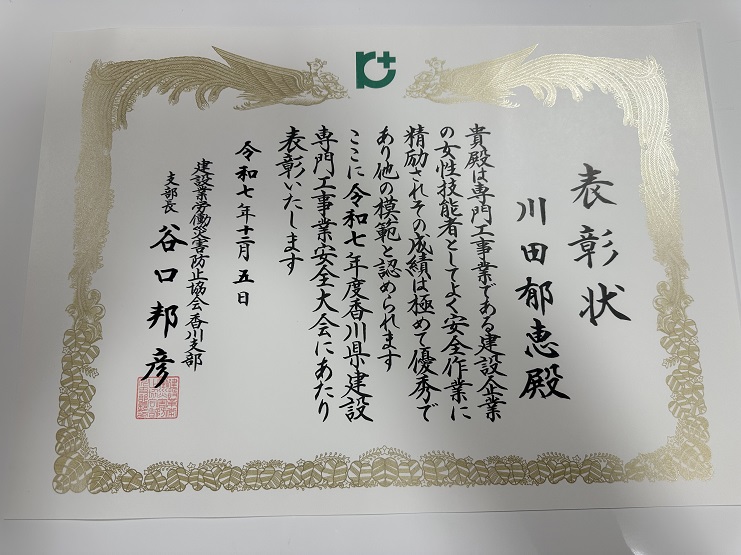 表彰状
川田郁恵殿
貴殿は専門工事業である建設企業
の女性技能者としてよく安全作業に
精励されその成績は極めて優秀で
あり他の模範と認められます
ここに令和七年度香川県建設
専門工事業安全大会にあたり
表彰いたします
令和七年十二月五日
建設業労働災害防止協会香川支部
支部長 谷口邦彦